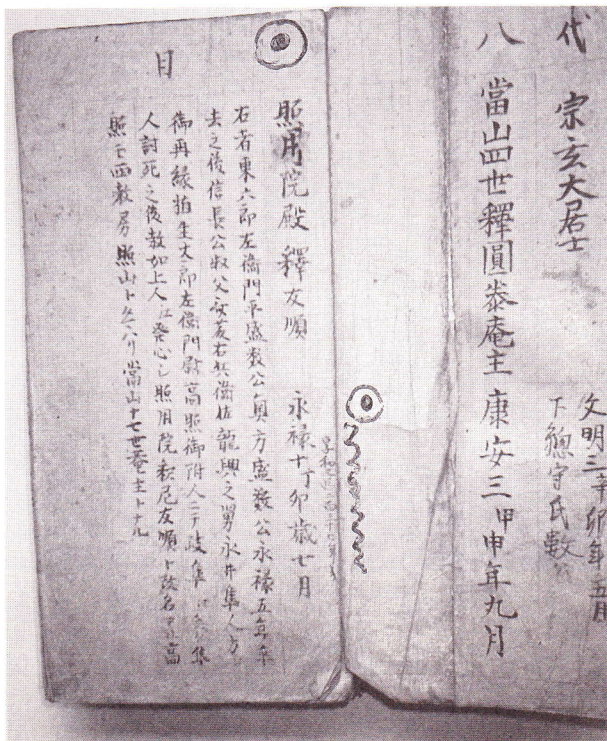 代 宗玄大居士
文明三辛卯年五月
下總守氏數公
八 當山四世釋圓泰庵主 康安三甲申年九月
目
照用院殿 釋友順 永禄十丁卯歳七月
右者東六郎左衞門平盛数公奥方盛数公永禄五年卒
去之後信長公叔父 右兵衞佐龍興之舅永井隼人方
御再縁 左衞門尉高照御附人ニテ岐阜 隼
人討死之後教如上人江発心シ照用院釈尼友順ト改名 高
照モ西教房照山ト 當山十七世庵主トナル